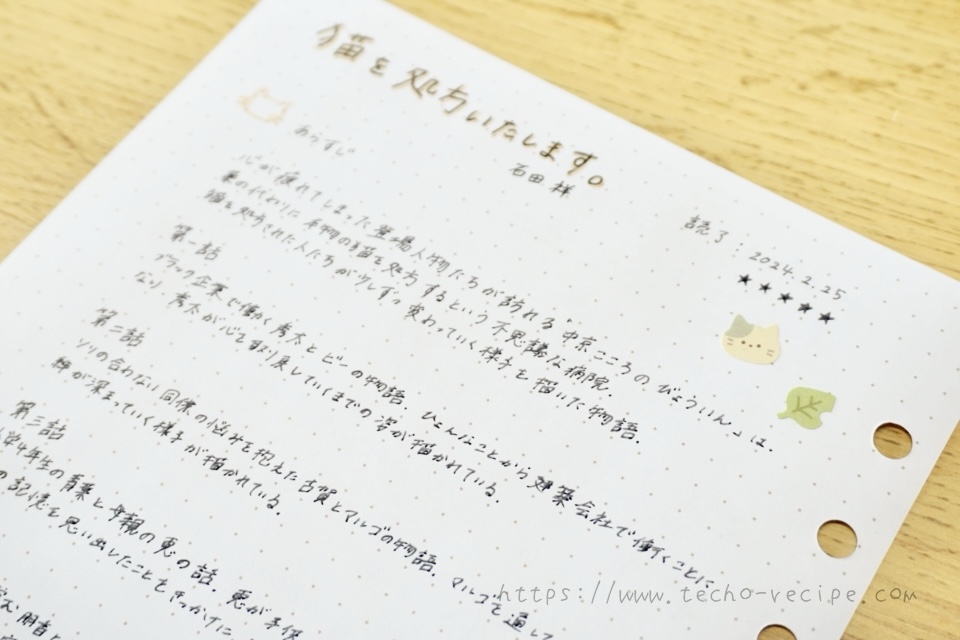 猫を処方いたします。
石田 祥
読了：2024.2.25
★★★★★
あらすじ
心が疲れてしまった登場人物たちが訪れる"中京こころのびょういん"は、
薬の代わりに本物の猫を処方するという不思議な病院。
猫を処方された人たちが少しずつ変わっていく様子を描いた物語。
第一話
ブラック企業で働く秀太とビーの物語。ひょんなことから建築会社で働くことに
なり、秀太が心を取り戻していくまでの姿が描かれている。
第二話
ソリの合わない同僚の悩みを抱えた古賀とマルゴの物語。マルゴを通して
絆が深まっていく様子が描かれている。
第三話
小学4年生の青葉と母親の恵の話。恵が子供
の記憶を思い出したことをきっかけに、
https://www.techo-recipe.com